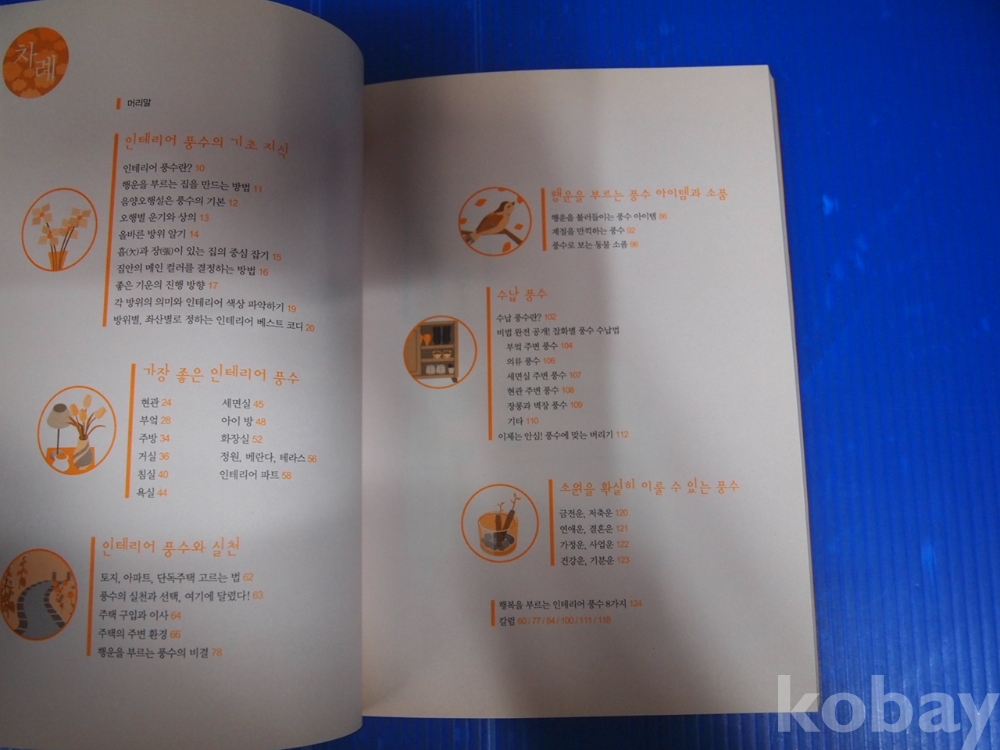 차례
머리말
인테리어 풍수의 기초 지식
인테리어 풍수란? 10
행운을 부르는 집을 만드는 방법 11
음양오행설은 풍수의 기본 12
오행별 운기와 상의 13
올바른 방위 알기 14
흠(欠)과 장(張)이 있는 집의 중심 잡기 15
집안의 메인 컬러를 결정하는 방법 16
좋은 기운의 진행 방향 17
각 방위의 의미와 인테리어 색상 파악하기 19
방위별, 좌산별로 정하는 인테리어 베스트 코디 20
가장 좋은 인테리어 풍수
현관 24
부엌 28
주방 34
거실 36
침실 40
욕실 44
세면실 45
아이 방 48
화장실 52
정원, 베란다, 테라스 56
인테리어 파트 58
인테리어 풍수와 실천
토지, 아파트, 단독주택 고르는 법 62
풍수의 실천과 선택, 여기에 달렸다! 63
주택 구입과 이사 64
주택의 주변 환경 66
행운을 부르는 풍수의 비결 78
행운을 부르는 풍수 아이템과 소품
행운을 불러들이는 풍수 아이템 86
계절을 만끽하는 풍수 92
풍수로 보는 동물 소품 96
수납 풍수
수납 풍수란? 102
비법 완전 공개! 잡화별 풍수 수납법
부엌 주변 풍수 104
의류 풍수 106
세면실 주변 풍수 107
현관 주변 풍수 108
장롱과 벽장 풍수 109
기타 110
이제는 안심! 풍수에 맞는 버리기 112
소원을 확실히 이룰 수 있는 풍수
금전운, 저축운 120
연애운, 결혼운 121
가정운, 사업운 122
건강운, 기분운 123
행복을 부르는 인테리어 풍수 8가지 124
칼럼 60 / 77 / 84 / 100 / 111 / 118
kobay